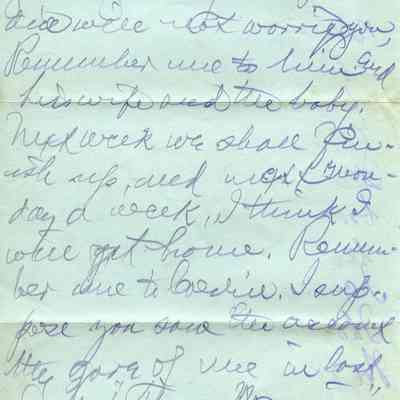 and were not worrying you,
Remember me to him and
his wife and the baby.
Next week we shall fin-
ish up, and next Mon-
day a week, I think I
will get home. Remem-
ber me to . I sup-
pose you saw the account
they gave of me in last